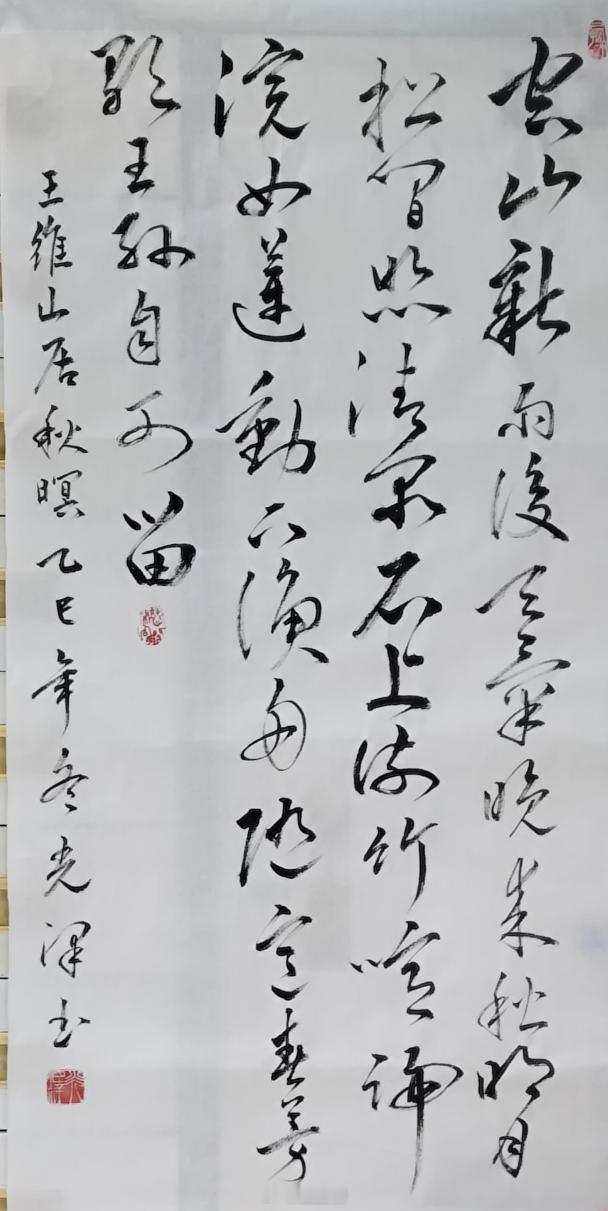 空山新雨後天氣晚来秋明月
松間照清泉石上流竹喧歸
浣女蓮動下漁舟隨意春芳
歇王孫自可留
王維山居秋暝乙巳年冬光澤书